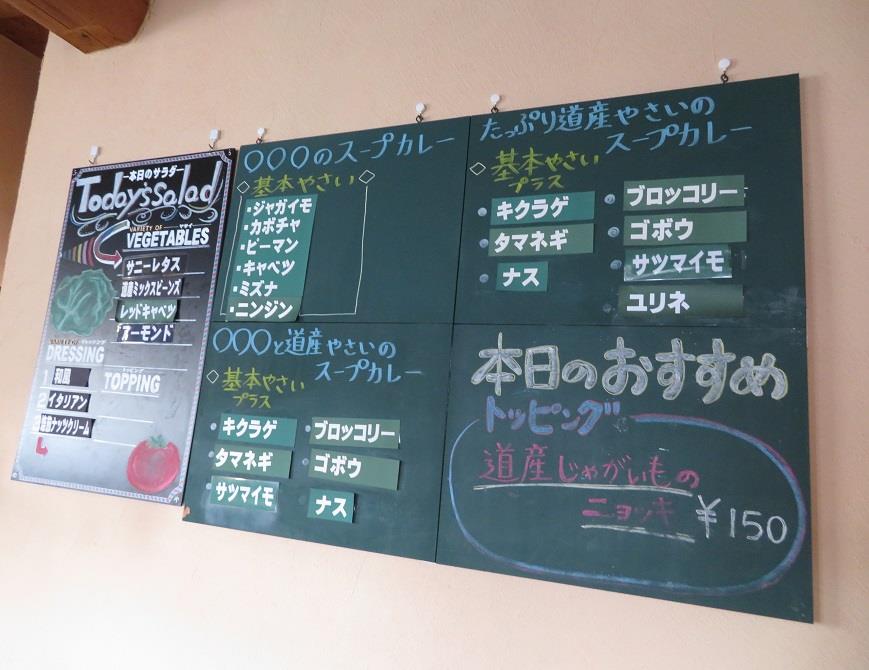 本日のサラダ
Today'sSalad
VARIETY OF ヤサイ
VEGETABLES
サニーレタス
道産ミックスビーンズ
レッドキャベツ
アーモンド
DRESSING
和風
イタリアン
ナッツクリーム
トッピング
TOPPING
〇〇〇のスープカレー
◇基本やさい◇
・ジャガイモ
・カボチャ
・ピーマン
・キャベツ
・ミズナ
・ニンジン
〇〇〇と道産やさいの
スープカレー
◇基本やさい
プラス
キクラゲ
タマネギ
サツマイモ
ブロッコリー
ゴボウ
ナス
たっぷり道産やさいの
スープカレー
◇基本やさい◇
プラス
キクラゲ
タマネギ
ナス
ブロッコリー
ゴボウ
サツマイモ
ユリネ
本日のおすすめ
トッピング
道産じゃがいもの
ニョッキ ¥150